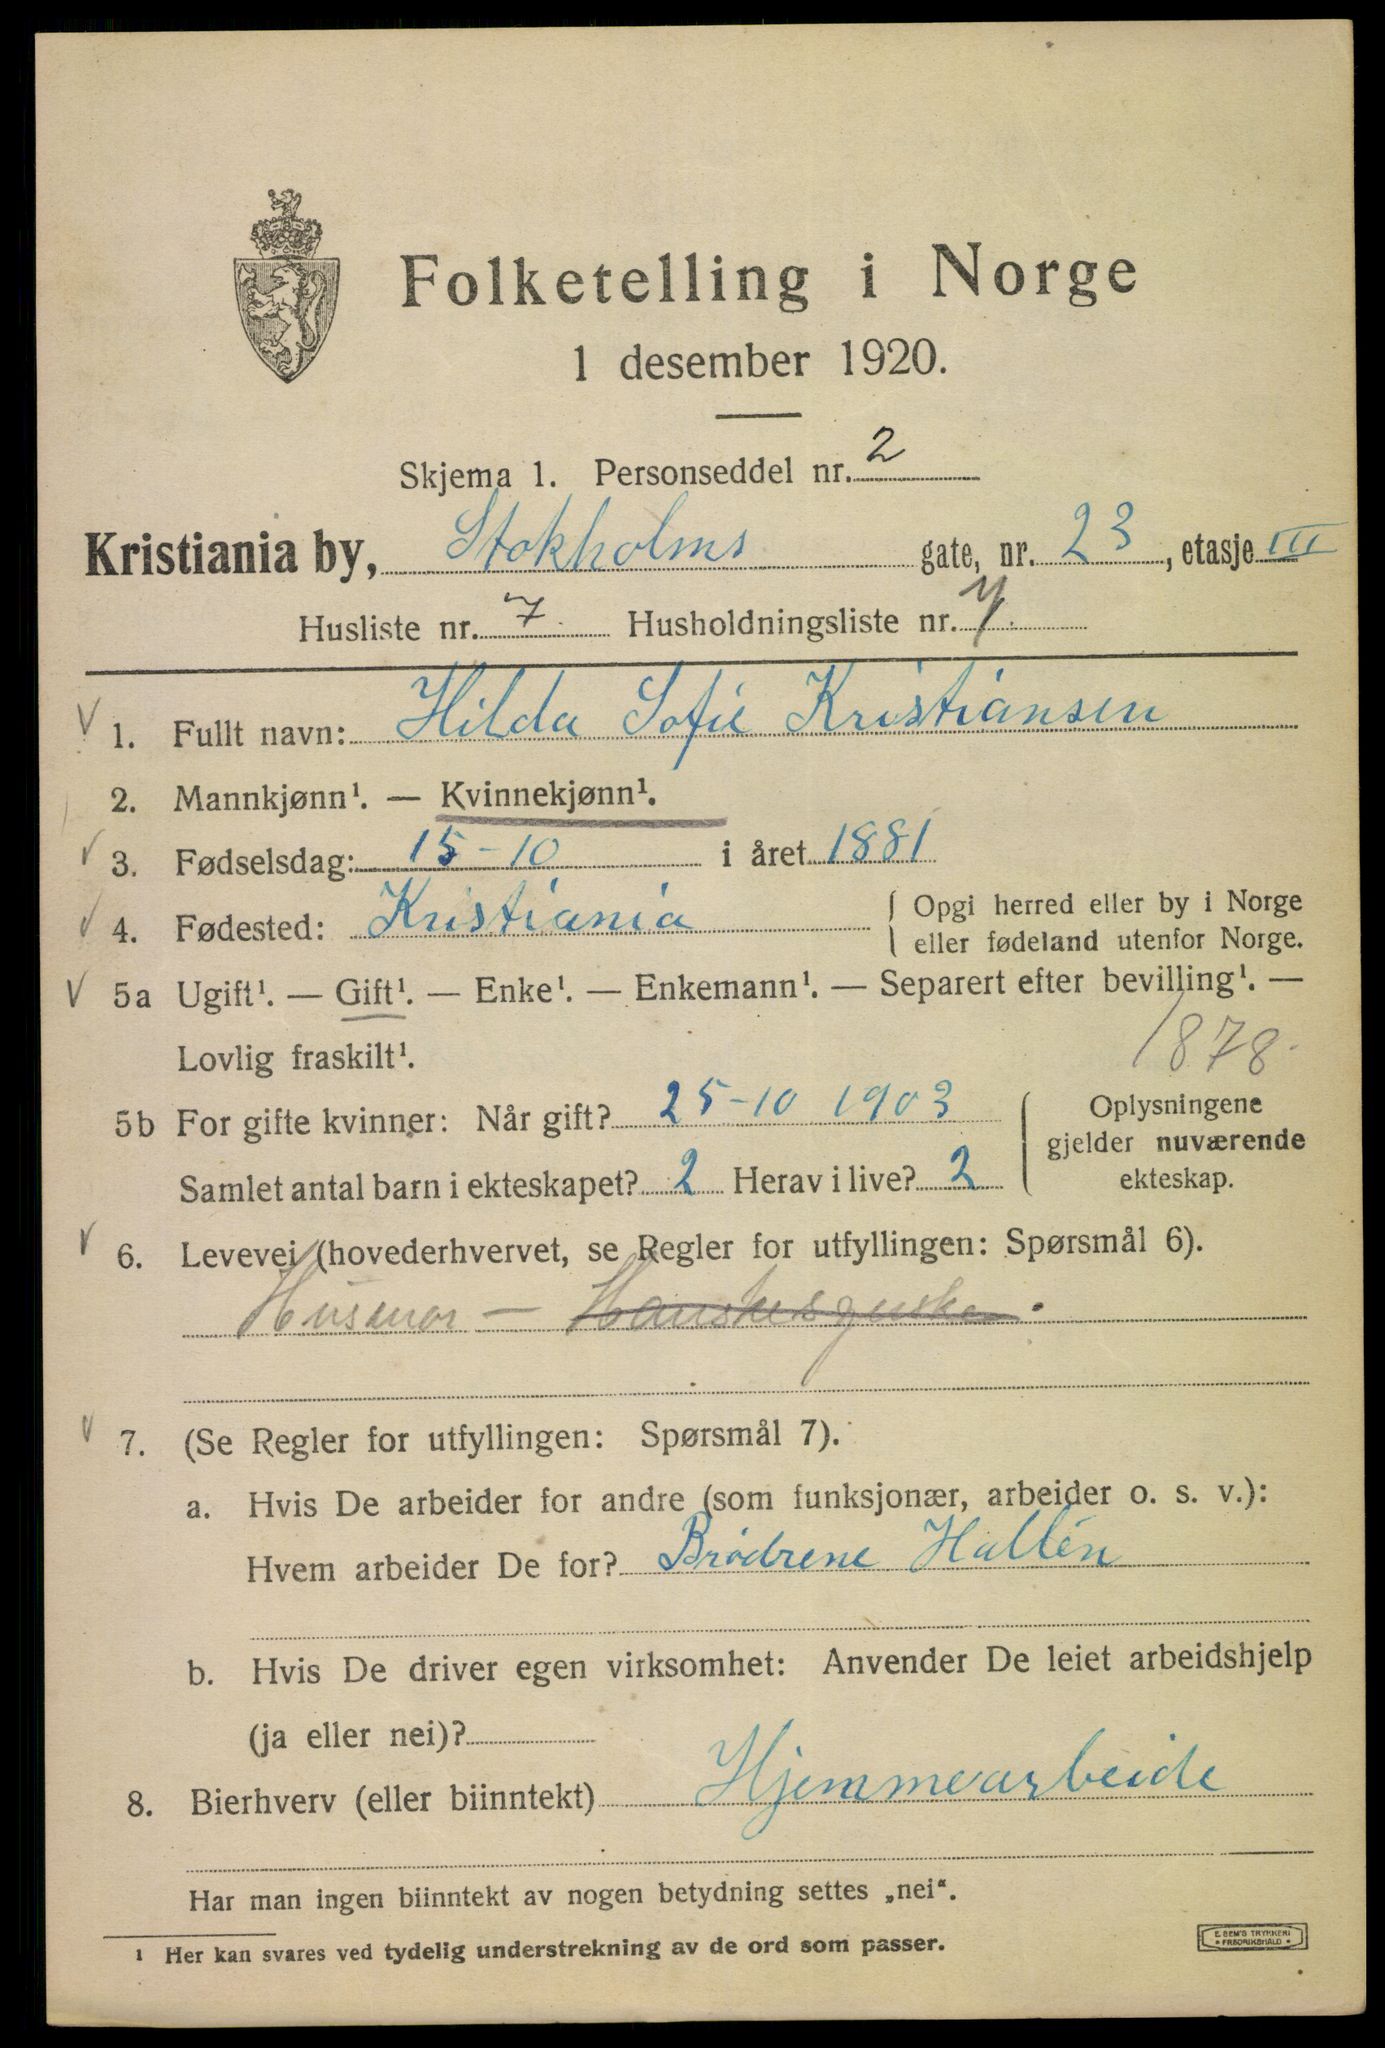 Folketelling i Norge
1 desember 1920.
Skjema 1. Personseddel nr. 2
Kristiania by, Stokholms gate, nr. 23, etasje III
Husliste nr. 7. Husholdningsliste nr. 7.
1. Fullt navn: Hilda Sofie Kristiansen
2. Mannkjønn¹. — Kvinnekjønn¹.
3. Fødselsdag: 15-10 i året 1881
4. Fødested: Kristiania { Opgi herred eller by i Norge
eller fødeland utenfor Norge.
5a Ugift¹. — Gift¹. — Enke¹. — Enkemann¹. — Separert efter bevilling¹. —
Lovlig fraskilt¹. 1878.
5b For gifte kvinner: Når gift? 25-10 1903
Samlet antal barn i ekteskapet? 2 Herav i live? 2
Oplysningene
gjelder nuværende
ekteskap.
6. Levevei (hovederhvervet, se Regler for utfyllingen: Spørsmål 6).
Husmor —
7. (Se Regler for utfyllingen: Spørsmål 7).
a. Hvis De arbeider for andre (som funksjonær, arbeider o. s. v.):
Hvem arbeider De for? Brødrene Hallén
b. Hvis De driver egen virksomhet: Anvender De leiet arbeidshjelp
(ja eller nei)?
8. Bierhverv (eller biinntekt) Hjemmearbeide
Har man ingen biinntekt av nogen betydning settes „nei“.
¹ Her kan svares ved tydelig understrekning av de ord som passer.
E. SEM'S TRYKKERI
• FREDRIKSHALD •